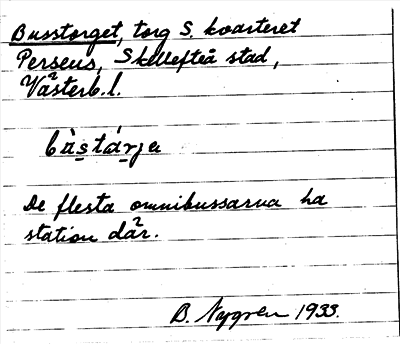 Busstorget, torg S. kvarteret
Perseus, Skellefteå stad,
Västerb. l.
bùstárjə
De flesta omnibussarna ha
station där.
B. Nygren 1933.